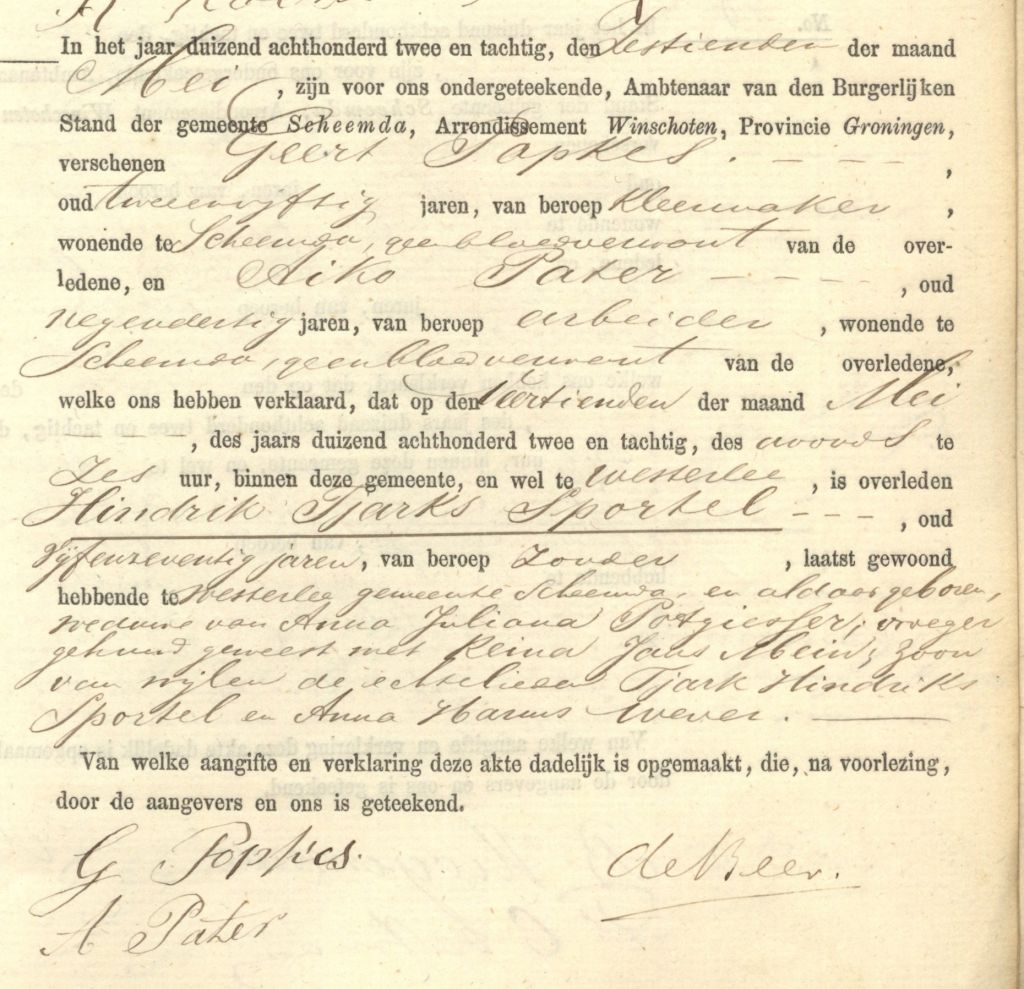 In het jaar duizend achthonderd twee en tachtig, den Zestienden der maand
Mei, zijn voor ons ondergeteekende, Ambtenaar van den Burgerlijken
Stand der gemeente Scheemda, Arrondissement Winschoten, Provincie Groningen,
verschenen Geert Popkes. - - - ,
oud tweeenvyftig jaren, van beroep kleermaker ,
wonende te Scheemda, geen bloedverwant van de over-
ledene, en Aiko Pater - - - , oud
negendertig jaren, van beroep arbeider , wonende te
Scheemda, geen bloedverwant van de overledene,
welke ons hebben verklaard, dat op den Veertienden der maand Mei
, des jaars duizend achthonderd twee en tachtig, des avonds te
Zes uur, binnen deze gemeente, en wel te Westerlee , is overleden
Hindrik Tjarks Sportel - - - , oud
Vijfenzeventig jaren, van beroep zonder , laatst gewoond
hebbende te Westerlee gemeente Scheemda, en aldaar geboren,
weduwe van Anna Juliana Potgiesser; vroeger
gehuwd geweest met Reina Jans Mein; zoon
van wijlen de echtelieden Tjark Hindriks
Sportel en Anna Harms Wever.
Van welke aangifte en verklaring deze akte dadelijk is opgemaakt, die, na voorlezing,
door de aangevers en ons is geteekend.
G Popkes. de Beer.
A Pater